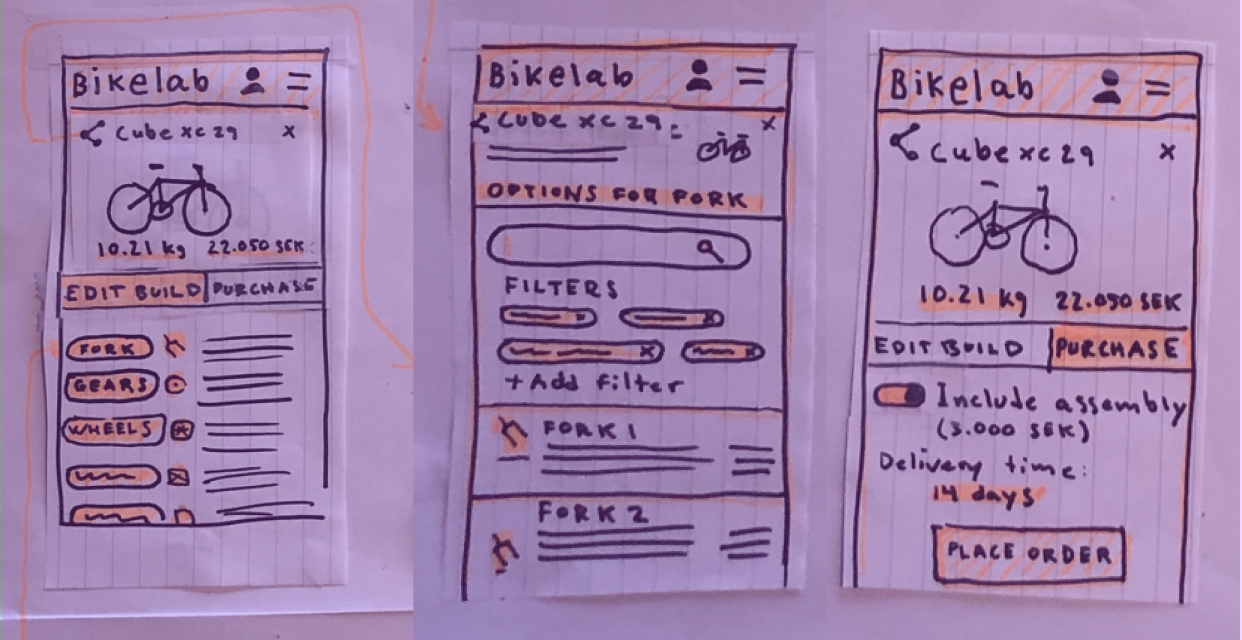 Bikelab
Cube xc 29 x
10.21 kg 22.050 SEK
EDIT BUILD PURCHASE
FORK
GEARS
WHEELS
Bikelab
Cube xc 29 x
OPTIONS FOR FORK
FILTERS
+ Add filter
FORK 1
FORK 2
Bikelab
Cube xc 29 x
10.21 kg 22.050 SEK
EDIT BUILD PURCHASE
Include assembly
(3.000 SEK)
Delivery time:
14 days
PLACE ORDER